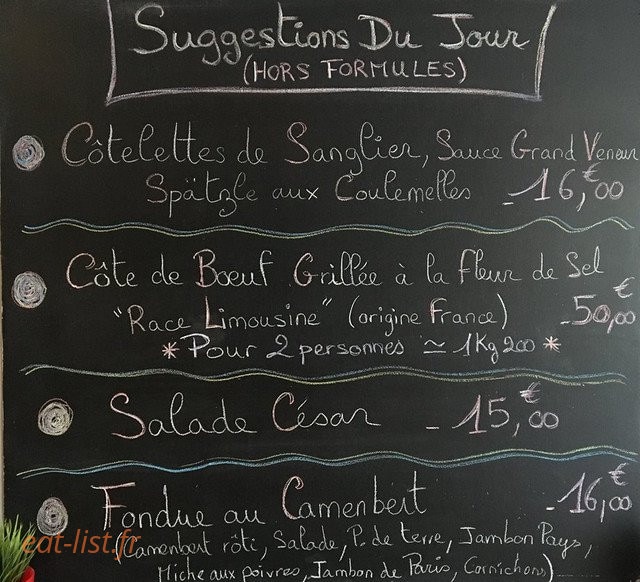 Suggestions Du Jour
(HORS FORMULES)
Côtelettes de Sanglier, Sauce Grand Veneur
Spätzle aux Coulemelles - 16,00 €
Côte de Bœuf Grillée à la Fleur de Sel
"Race Limousine" (origine France) - 50,00 €
* Pour 2 personnes ≃ 1Kg200 *
Salade César - 15,00 €
Fondue au Camenbert - 16,00 €
(Camenbert rôti, Salade, P. de terre, Jambon Pays,
Miche aux poivres, Jambon de Paris, Cornichons)
eat-list.fr